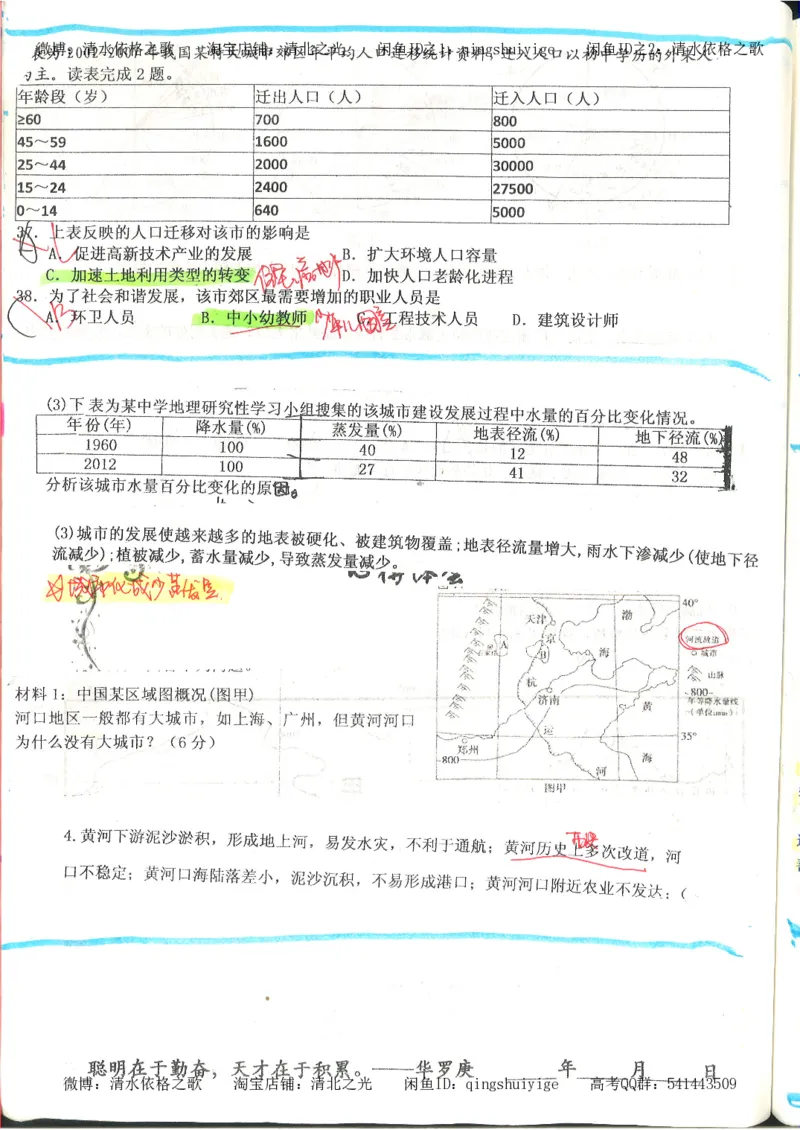 微博：清水依格之歌 淘宝店铺：清北之光 闲鱼ID之1：qingshuiyige 闲鱼ID之2：清水依格之歌
为主。读表完成2题。
年龄段（岁） 迁出人口（人） 迁入人口（人）
≥60 700 800
45～59 1600 5000
25～44 2000 30000
15～24 2400 27500
0～14 640 5000
37．上表反映的人口迁移对该市的影响是
A．促进高新技术产业的发展 B．扩大环境人口容量
C．加速土地利用类型的转变 D．加快人口老龄化进程
38．为了社会和谐发展，该市郊区最需要增加的职业人员是
A．环卫人员 B．中小幼教师 C．工程技术人员 D．建筑设计师
(3)下表为某中学地理研究性学习小组搜集的该城市建设发展过程中水量的百分比变化情况。
年份(年) 降水量(%) 蒸发量(%) 地表径流(%) 地下径流(%)
1960 100 40 12 48
2012 100 27 41 32
分析该城市水量百分比变化的原因。
(3)城市的发展使越来越多的地表被硬化、被建筑物覆盖；地表径流量增大，雨水下渗减少(使地下径
流减少)；植被减少，蓄水量减少，导致蒸发量减少。
材料1：中国某区域图概况(图甲)
河口地区一般都有大城市，如上海、广州，但黄河河口
为什么没有大城市？（6分）
40°
天津
渤
河流故道
京
A
B
海
城市
山脉
杭
济南
黄
-800-
年等降水量线
(单位:mm)
运
35°
郑州
800
海
河
图甲
4.黄河下游泥沙淤积，形成地上河，易发水灾，不利于通航；黄河历史上多次改道，河
口不稳定；黄河口海陆落差小，泥沙沉积，不易形成港口；黄河河口附近农业不发达；(
聪明在于勤奋，天才在于积累。——华罗庚 年 月 日
微博：清水依格之歌 淘宝店铺：清北之光 闲鱼ID：qingshuiyige 高考QQ群：541443509